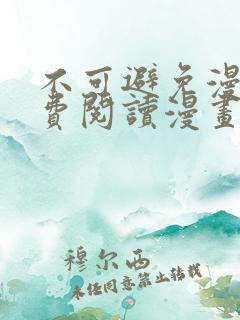 不可避免漫
费阅讀漫畫
穆尔西
未经同意禁止转载